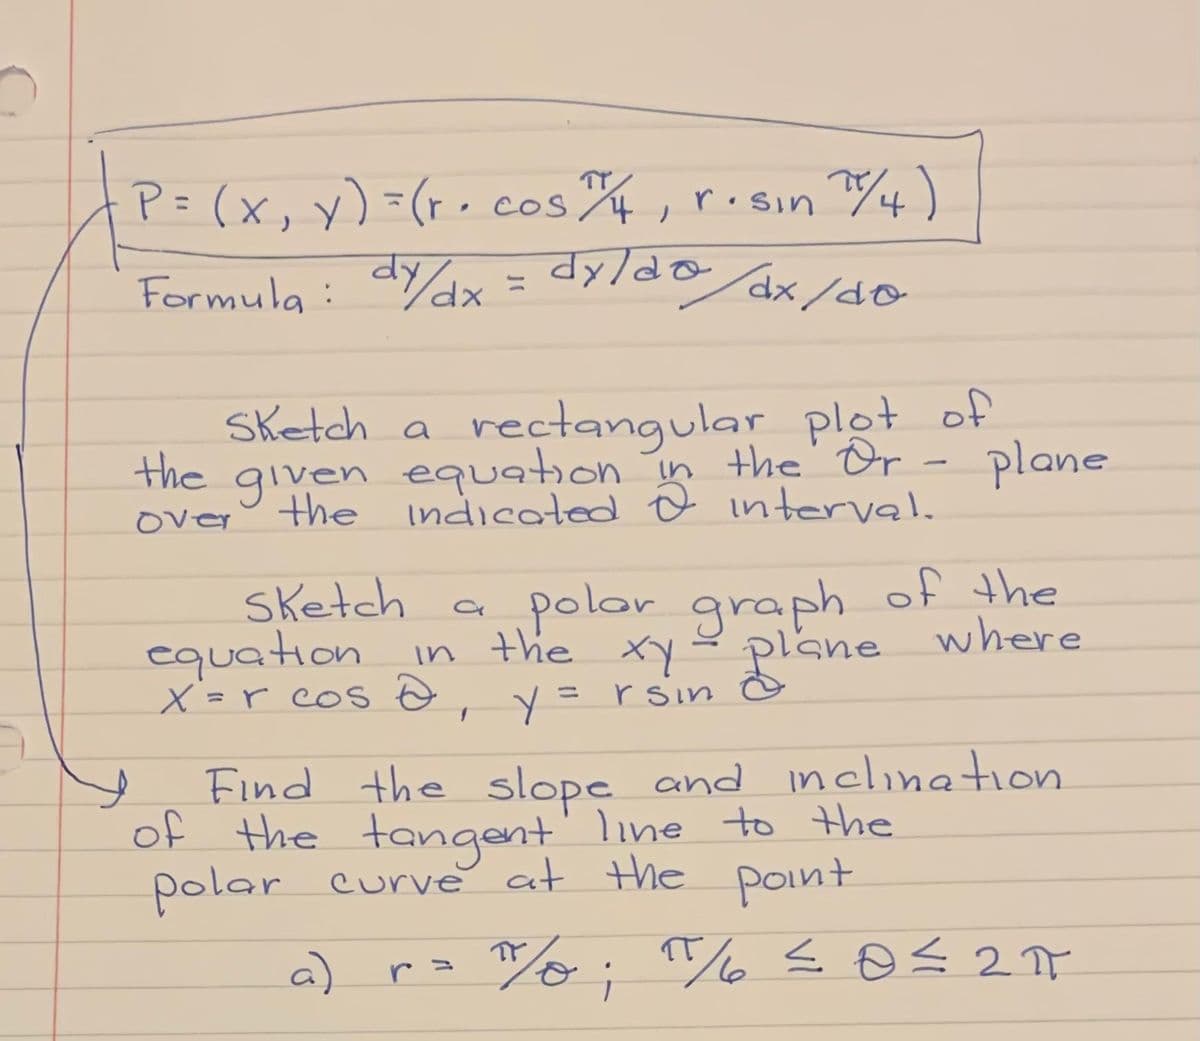 P = (x, y) = (r · cos π/4, r · sin π/4)
Formula : dy/dx = dy/dθ / dx/dθ
Sketch a rectangular plot of
the given equation in the θr - plane
over the indicated θ interval.
Sketch a polar graph of the
equation in the xy - plane where
x = r cos θ, y = r sin θ
Find the slope and inclination
of the tangent line to the
polar curve at the point
a) r = π/θ ; π/6 ≤ θ ≤ 2π